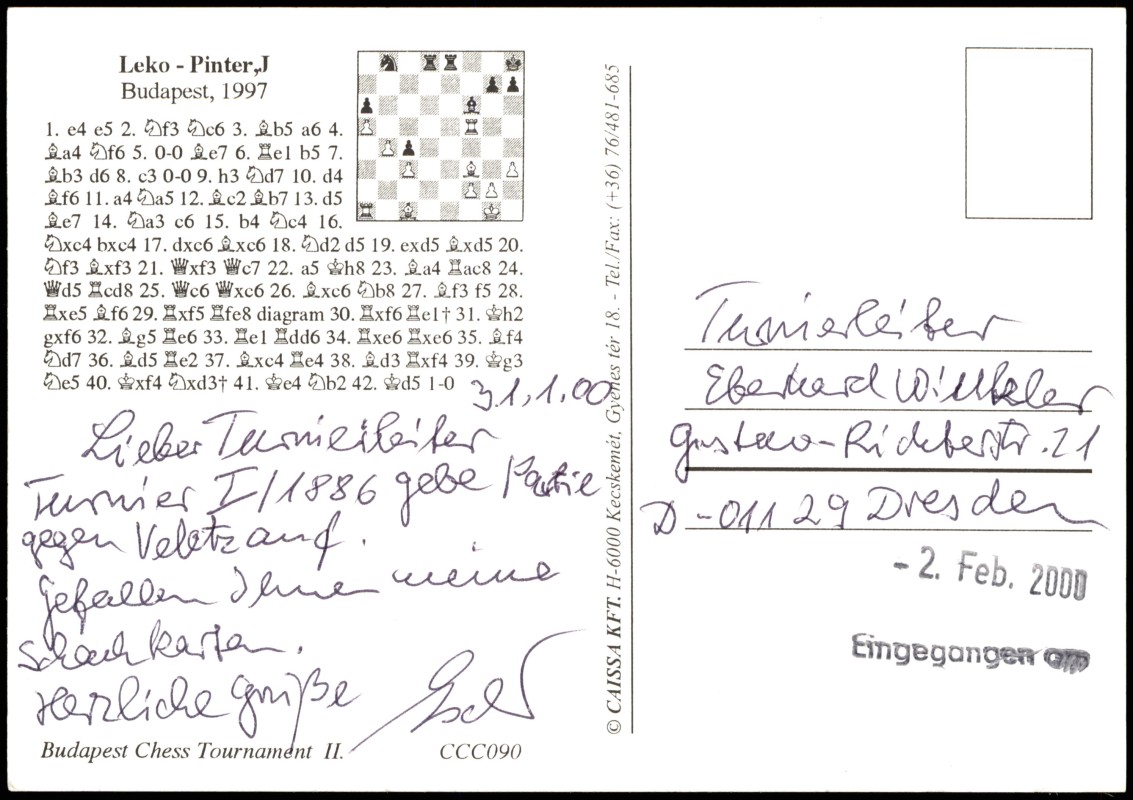 Leko - Pinter,J
Budapest, 1997
1. e4 e5 2. ♘f3 ♘c6 3. ♗b5 a6 4.
♗a4 ♘f6 5. 0-0 ♗e7 6. ♖e1 b5 7.
♗b3 d6 8. c3 0-0 9. h3 ♘d7 10. d4
♗f6 11. a4 ♘a5 12. ♗c2 ♗b7 13. d5
♗e7 14. ♘a3 c6 15. b4 ♘c4 16.
♘xc4 bxc4 17. dxc6 ♗xc6 18. ♘d2 d5 19. exd5 ♗xd5 20.
♘f3 ♗xf3 21. ♕xf3 ♕c7 22. a5 ♔h8 23. ♗a4 ♖ac8 24.
♕d5 ♖cd8 25. ♕c6 ♕xc6 26. ♗xc6 ♘b8 27. ♗f3 f5 28.
♖xe5 ♗f6 29. ♖xf5 ♖fe8 diagram 30. ♖xf6 ♖e1† 31. ♔h2
gxf6 32. ♗g5 ♖e6 33. ♖e1 ♖dd6 34. ♖xe6 ♖xe6 35. ♗f4
♘d7 36. ♗d5 ♖e2 37. ♗xc4 ♖e4 38. ♗d3 ♖xf4 39. ♔g3
♘e5 40. ♔xf4 ♘xd3† 41. ♔e4 ♘b2 42. ♔d5 1-0
31.1.00
Lieber Turnierleiter
Turnier I/1886 gebe Partie
gegen auf.
Gefallen Ihnen meine
Schachkarten.
Herzliche Grüße
Budapest Chess Tournament II.
CCC090
© CAISSA KFT. H-6000 Kecskemét, Gyenes tér 18. - Tel./Fax: (+36) 76/481-685
Turnierleiter
Eberhard Winkler
Gustav-Richterstr. 21
D-01129 Dresden
- 2. Feb. 2000
Eingegangen am